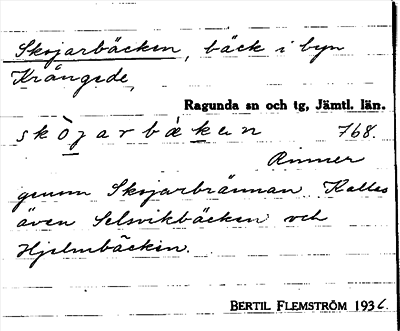 Skojarbäcken, bäck i byn
Krångede,
Ragunda sn och tg, Jämtl. län.
skò̱jarbàḵen 768.
Rinner
genom Skojarbrännan. Kallas
även Selsvikbäcken och
Hjelmbäcken.
BERTIL FLEMSTRÖM 1936.